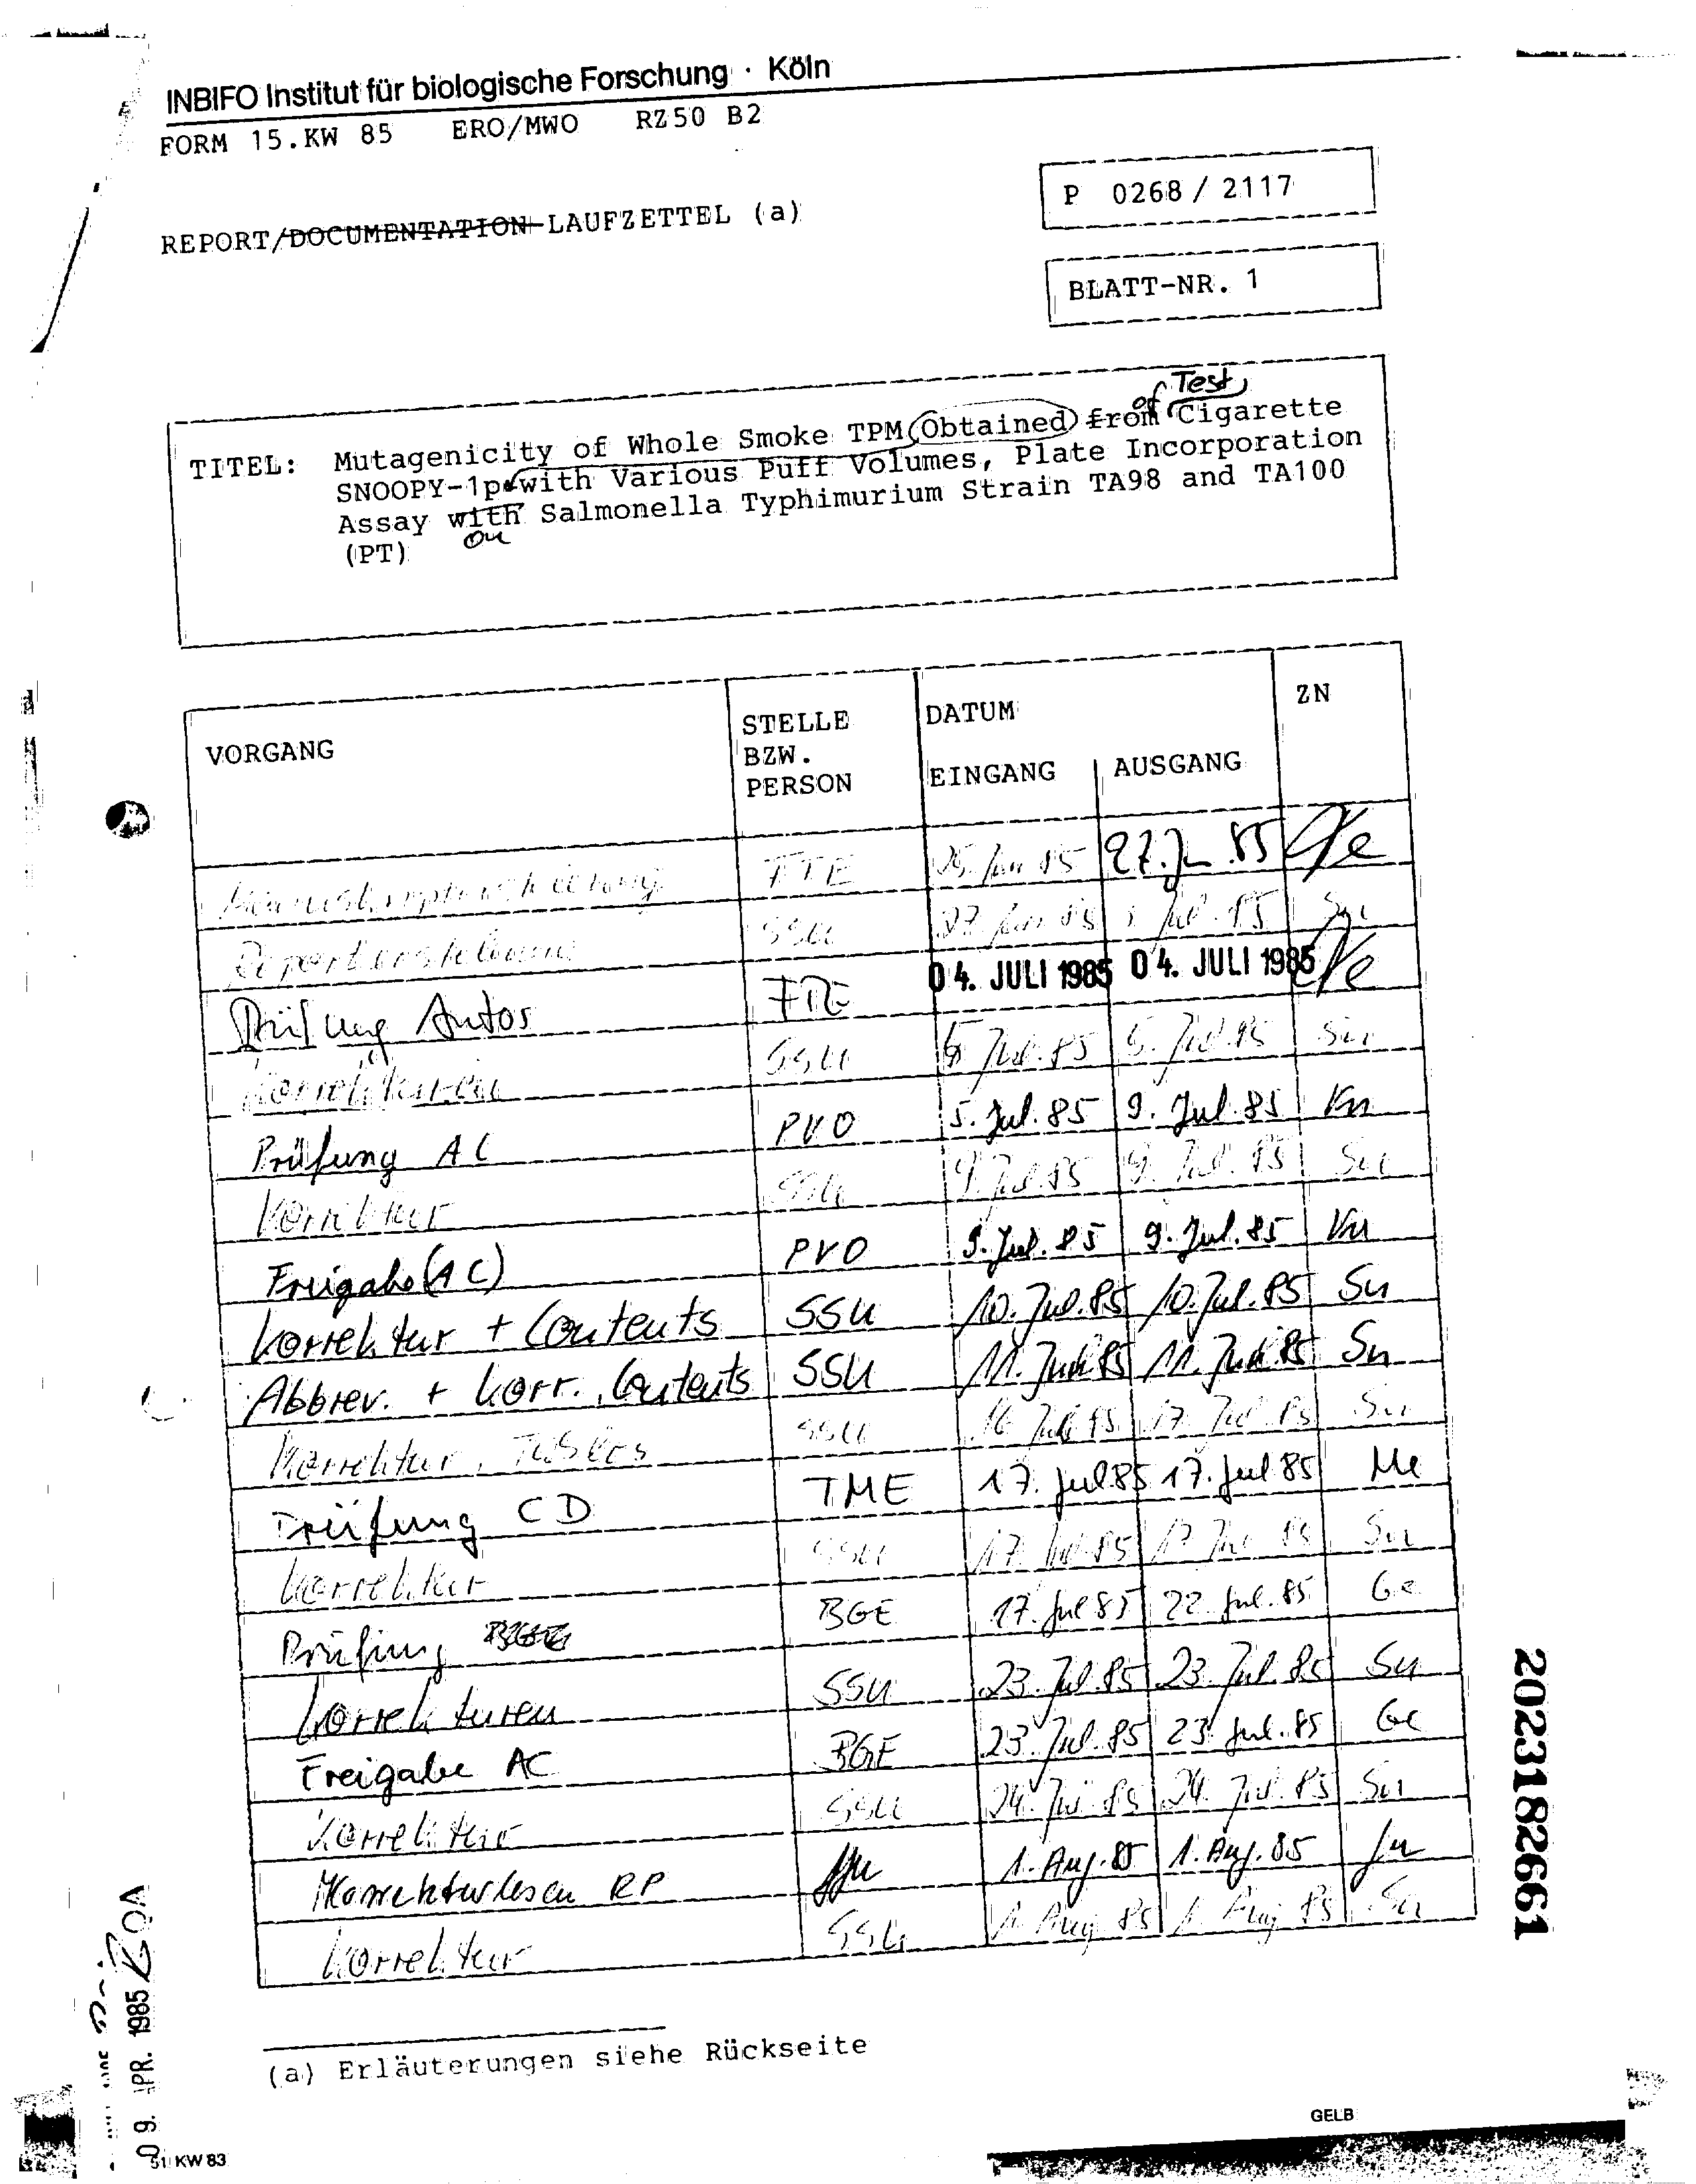 INBIFO Institut für biologische Forschung · Köln
FORM 15.KW 85 ERO/MWO RZ50 B2
P 0268 / 2117
REPORT/DOCUMENTATION LAUFZETTEL (a)
BLATT-NR. 1
Test
of
TITEL: Mutagenicity of Whole Smoke TPM Obtained from Cigarette
SNOOPY-1p with Various Puff Volumes, Plate Incorporation
Assay with Salmonella Typhimurium Strain TA98 and TA100
on
(PT)
VORGANG STELLE BZW. PERSON DATUM EINGANG AUSGANG ZN
FTE 25. Jun 85 27. Jun. 85
Reporterstellung SSU 27. Jun 85 Jul. 85 Su
Prüfung Autor FTE 04. JULI 1985 04. JULI 1985
Korrekturen SSU Jul. 85 5. Jul. 85 Su
Prüfung AC PVO 5. Jul. 85 9. Jul. 85 Kn
Korrektur SSU 9. Jul. 85 9. Jul. 85 Su
Freigabe (AC) PVO 9. Jul. 85 9. Jul. 85 Kn
Korrektur + Contents SSU 10. Jul. 85 10. Jul. 85 Su
Abbrev. + Korr., Contents SSU 11. Juli 85 11. Juli 85 Su
Korrektur, Tables SSU 16 Juli 85 17. Jul. 85 Su
Prüfung CD TME 17. Jul 85 17. Jul 85 Me
Korrektur SSU 17. Jul. 85 17 Jul 85 Su
Prüfung BGE 17. Jul 85 22 Jul. 85 Ge
Korrekturen SSU 23. Jul. 85 23. Jul. 85 Su
Freigabe AC BGE 23. Jul. 85 23 Jul. 85 Ge
Korrektur SSU 24. Jul 85 24. Jul. 85 Su
Korrekturlesen RP 1. Aug. 85 1. Aug. 85
Korrektur SSU 1. Aug 85 1. Aug 85 Su
(a) Erläuterungen siehe Rückseite
GELB
51 KW 83
09. APR. 1985
2023182661